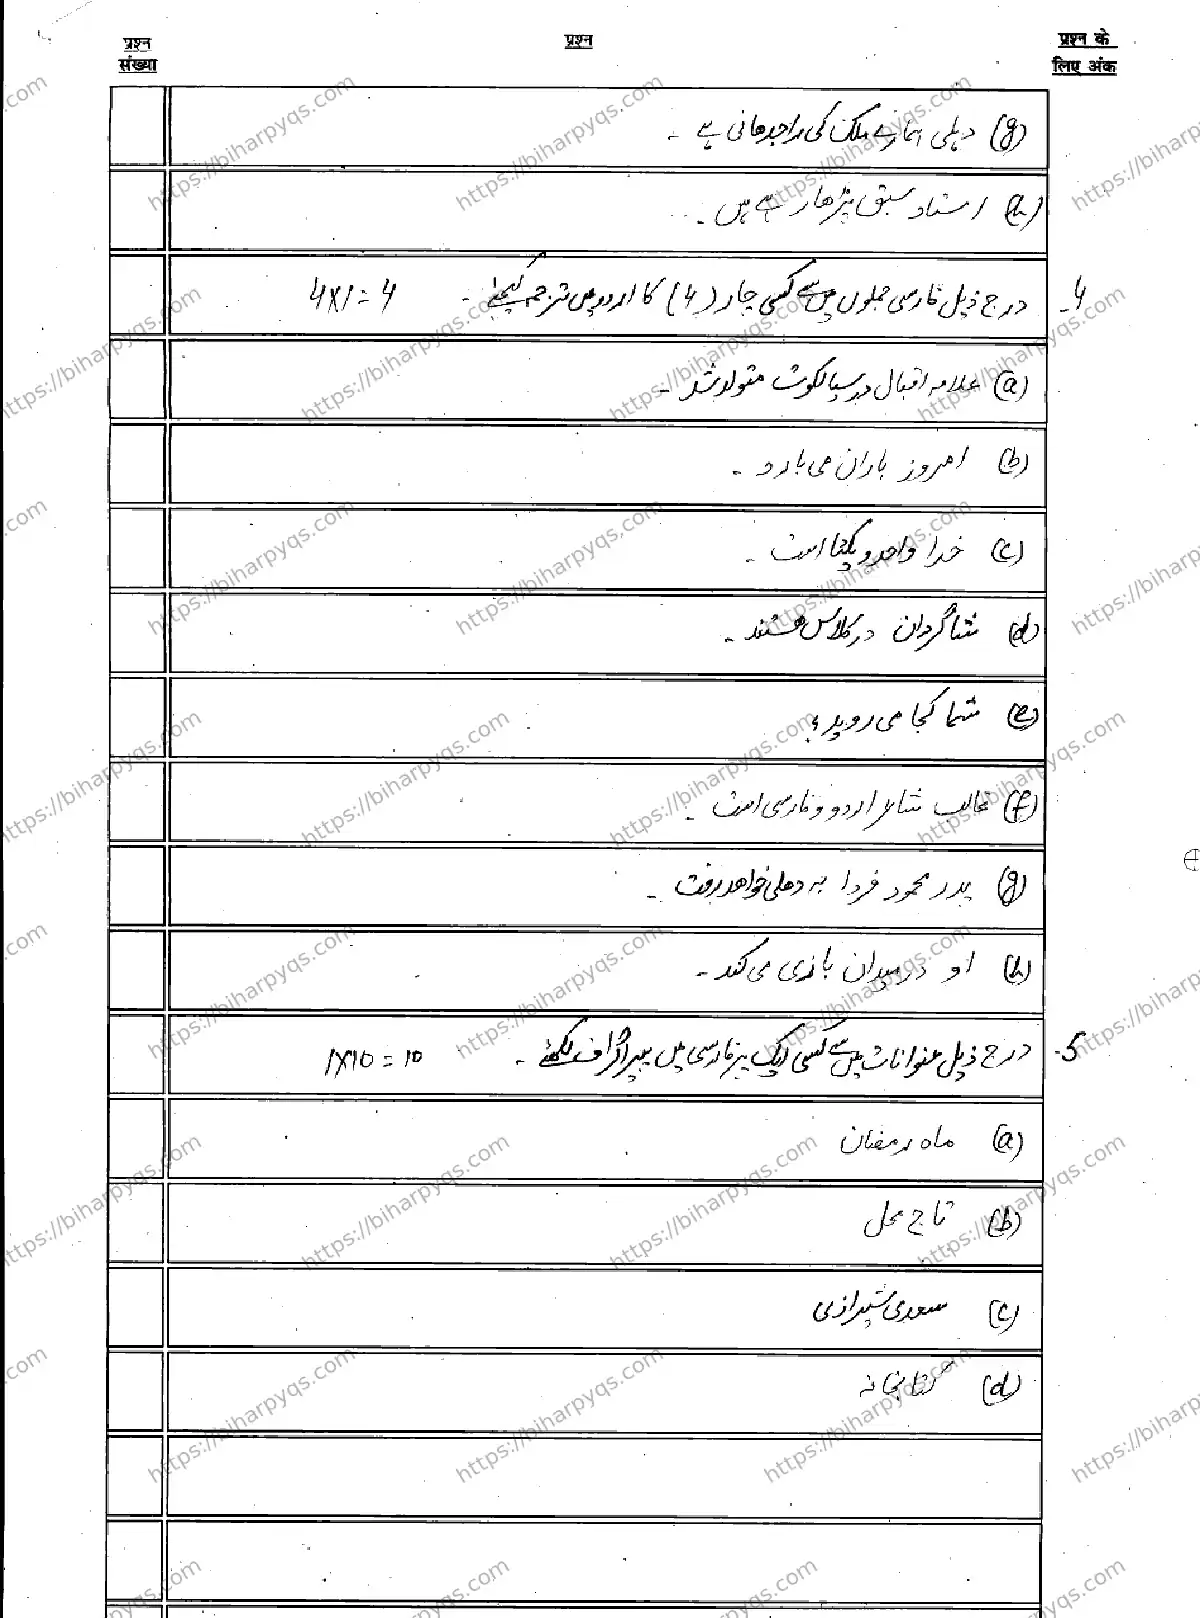 प्रश्न संख्या
प्रश्न
प्रश्न के लिए अंक
(g) دہلی ہمارے ملک کی راجدھانی ہے ۔
(h) استاد سبق پڑھا رہے ہیں ۔
4- درج ذیل فارسی جملوں میں سے کسی چار (4) کا اردو میں ترجمہ کیجئے ۔ 4x1=4
(a) علامہ اقبال در سیالکوٹ متولد شد ۔
(b) امروز باران می بارد ۔
(c) خدا واحد و یکتا است ۔
(d) شاگردان در کلاس ہستند ۔
(e) شما کجا می روید ؟
(f) غالب شاعر اردو و فارسی است ۔
(g) پدر محمود فردا بہ دھلی خواھد رفت ۔
(h) او در میدان بازی می کند ۔
5- درج ذیل عنوانات میں سے کسی ایک پر فارسی میں پیراگراف لکھئے ۔ 1x10=10
(a) ماہ رمضان
(b) تاج محل
(c) سعدی شیرازی
(d) کتابخانہ
https://biharpyqs.com